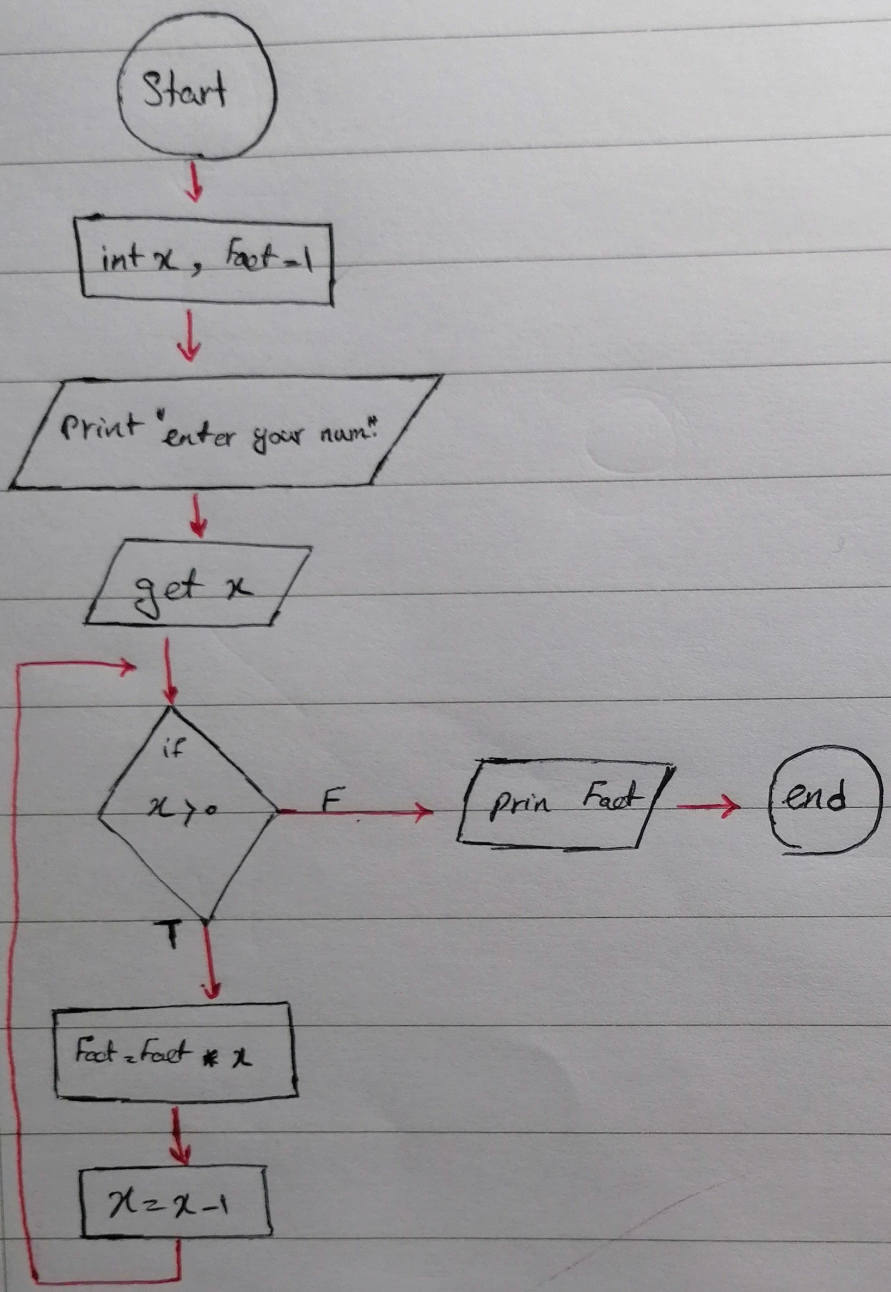 Start
int x, Fact=1
Print "enter your num"
get x
if
x>0
F
prin Fact
end
T
Fact=Fact * x
x=x-1